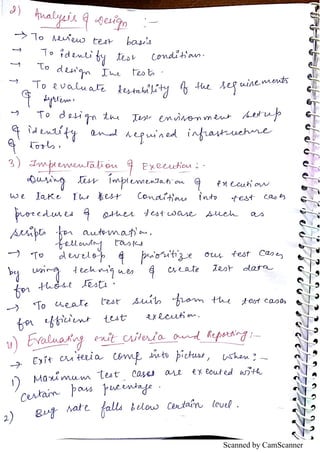 2) Analysis & Design :-
→ To review test basis
→ To identify test condition.
→ To design the tests.
→ To evaluate testability of the requirements
& system.
→ To design the test environment setup
& identify and required infrastructure
& tools.
3) Impementation & Execution :-
During test implementation & execution
we take the test condition into test cases
procedures & other testware such as
scripts for automation.
following tasks
→ To develop & prioritize our test cases,
by using techniques & create test data
for those tests.
→ To create test suits from the test cases
for efficient test execution.
4) Evaluating exit criteria and Reporting :-
→ Exit criteria come into picture, when :-
1) Maximum test cases are executed with
certain pass percentage.
2) Bug rate falls below certain level.
Scanned by CamScanner